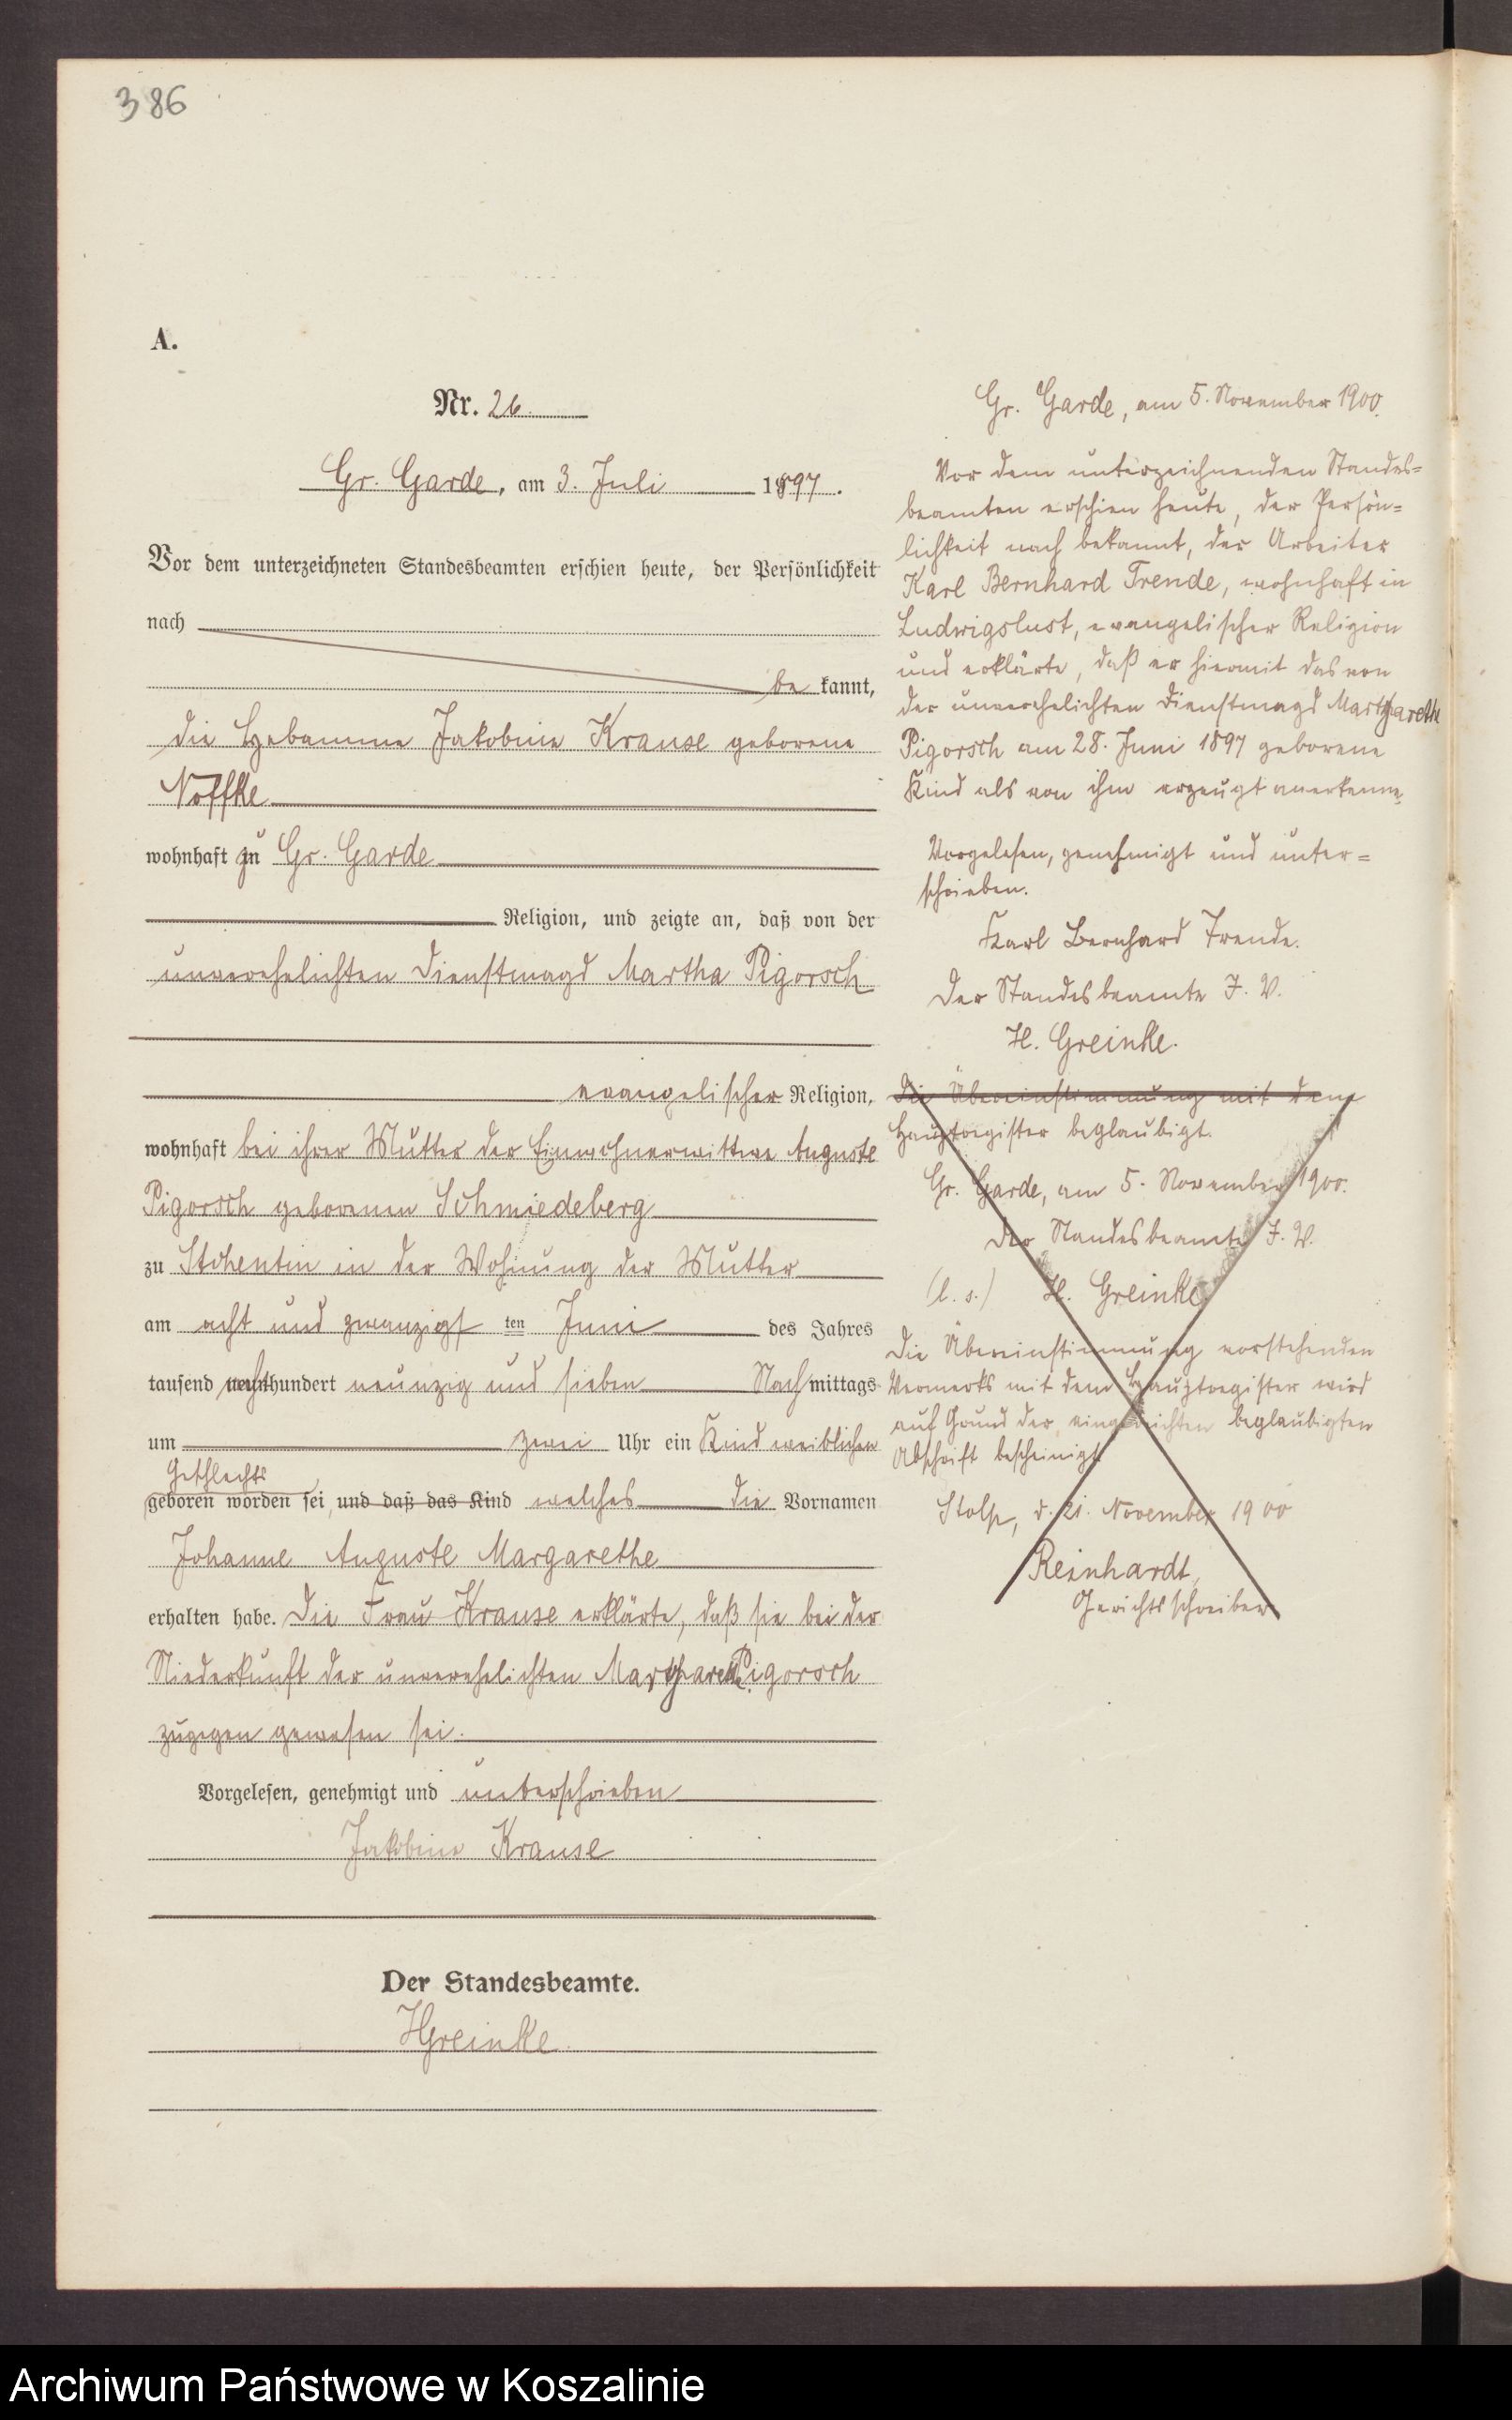 386
A.
Nr. 26.
Gr. Garde, am 3. Juli 1897.
Vor dem unterzeichneten Standesbeamten erschien heute, der Persönlichkeit
nach
be kannt,
die Hebamme Jakobine Krause geborene
Noffke
wohnhaft zu Gr. Garde
Religion, und zeigte an, daß von der
unverehelichten Dienstmagd Martha Pigorsch
evangelischer Religion,
wohnhaft bei ihrer Mutter der Einwohnerwittwe Auguste
Pigorsch geborenen Schmiedeberg
zu Stohentin in der Wohnung der Mutter
am acht und zwanzigsten Juni des Jahres
tausend achthundert neunzig und sieben Nachmittags
um zwei Uhr ein Kind weiblichen
Geschlechts
geboren worden sei, und daß das Kind welches die Vornamen
Johanne Auguste Margarethe
erhalten habe. Die Frau Krause erklärte, daß sie bei der
Niederkunft der unverehelichten Pigorsch
zugegen gewesen sei.
Vorgelesen, genehmigt und unterschrieben
Jakobine Krause
Der Standesbeamte.
HGreinke
Gr. Garde, am 5. November 1900.
Vor dem unterzeichnenden Standes=
beamten erschien heute, der Persön=
lichkeit nach bekannt, der Arbeiter
Karl Bernhard Trende, wohnhaft in
Ludwigslust, evangelischer Religion
und erklärte, daß er hiermit das von
der unverehelichten Dienstmagd
Pigorsch am 28. Juni 1897 geborene
Kind als von ihm erzeugt anerkenne.
Vorgelesen, genehmigt und unter=
schrieben.
Karl Bernhard Trende.
Der Standesbeamte J. V.
H. Greinke.
Die Übereinstimmung mit dem
Hauptregister beglaubigt.
Gr. Garde, am 5. November 1900.
Der Standesbeamte J. V.
(l. s.) H. Greinke
Die Übereinstimmung vorstehenden
Vermerks mit dem Hauptregister wird
auf Grund der eingereichten beglaubigten
Abschrift bescheinigt
Stolp, d. 21. November 1900
Reinhardt,
Gerichtsschreiber
Archiwum Państwowe w Koszalinie